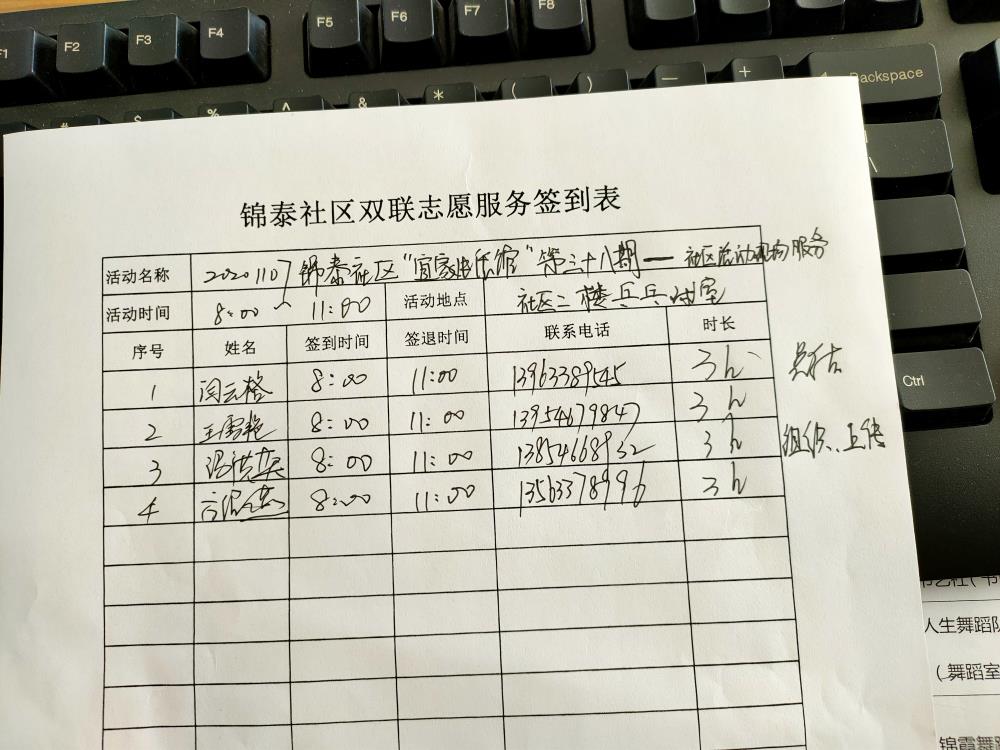 F1 F2 F3 F4 F5 F6 F7 F8
# $ % ^ & * ( ) — + Backspace
\
Ctrl
锦泰社区双联志愿服务签到表
活动名称 20201107锦泰社区"宜家俱乐馆"第三十八期—社区活动现场服务
活动时间 8:00~11:00 活动地点 社区二楼乒乓球室
序号 姓名 签到时间 签退时间 联系电话 时长
1 闫云格 8:00 11:00 13963389545 3h
2 王雪艳 8:00 11:00 13954679847 3h
3 8:00 11:00 13854668932 3h 组织、上传
4 8:00 11:00 13563378996 3h
人生舞蹈队
(舞蹈室
锦霞舞蹈